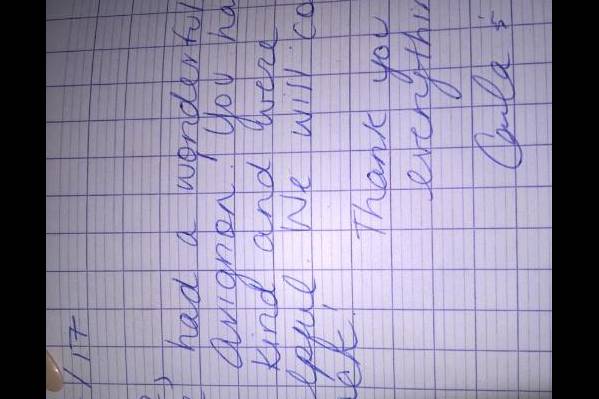 /17
had a wonderful
Avignon. You ha
kind and were
lpful. We will co
ck!
Thank you
everythin
Carla &